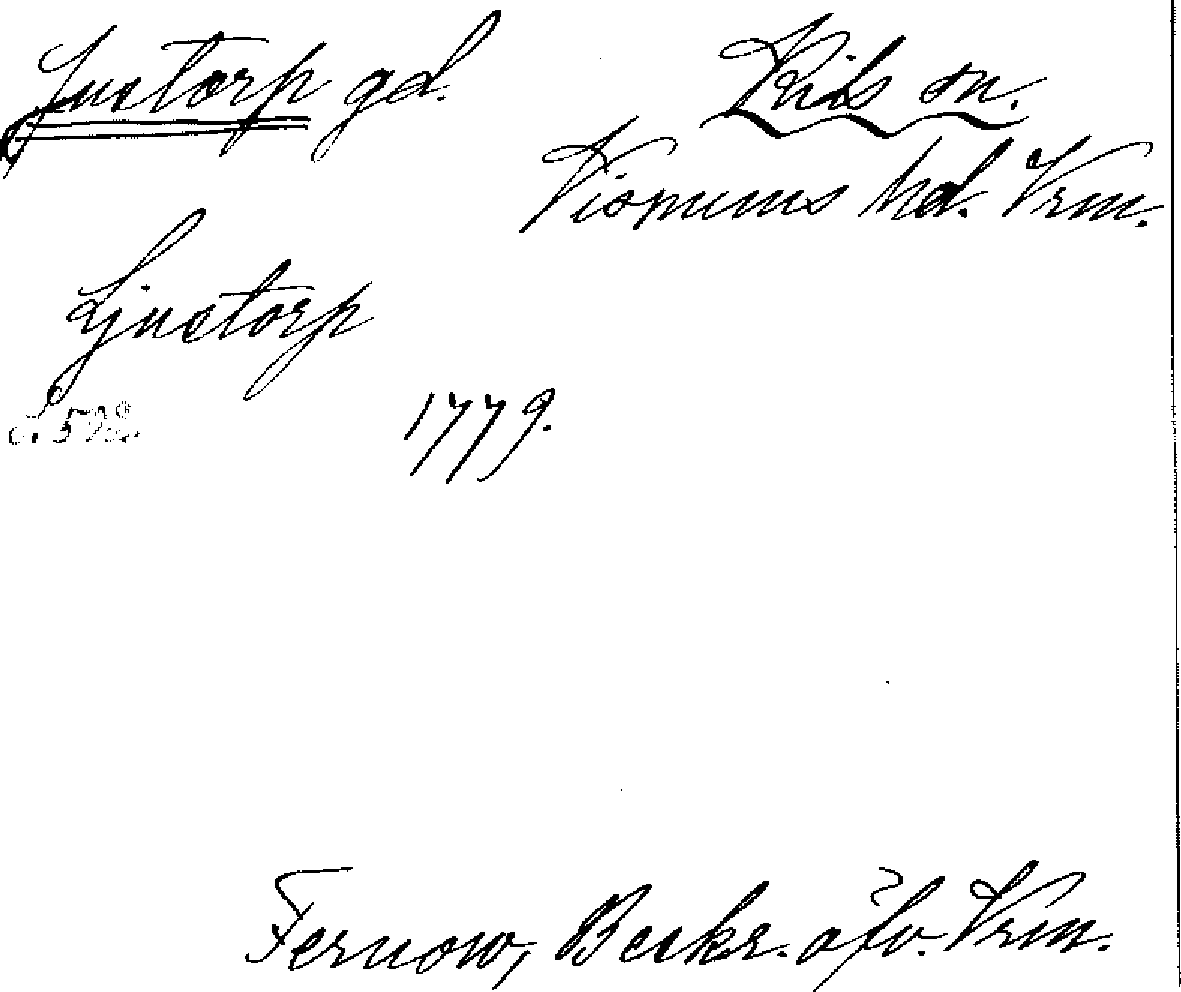 Justorp gd. Kils sn.
Visnums hd. Vrm.
Ljustorp
1779.
Fernow, Beskr. öfv. Vrm.